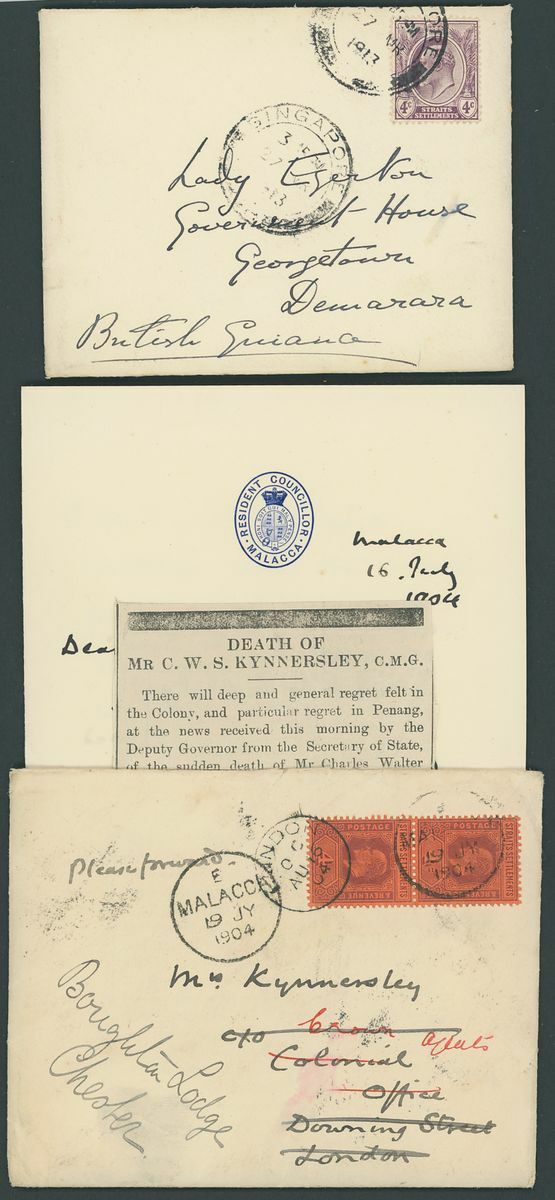 ORE
27 MR
1913
4c 4c
STRAITS
SETTLEMENTS
SINGAPORE
3
27
13
Lady Egerton
Government House
Georgetown
Demarara
British Guiana
RESIDENT COUNCILLOR
MALACCA
Malacca
16. July
1904
Dea
DEATH OF
MR C. W. S. KYNNERSLEY, C.M.G.
There will deep and general regret felt in
the Colony, and particular regret in Penang,
at the news received this morning by the
Deputy Governor from the Secretary of State,
of the sudden death of Mr Charles Walter
Please forward.
E
MALACCA
19 JY
1904
LONDON
AU 15
04
POSTAGE POSTAGE
STRAITS SETTLEMENTS
STRAITS SETTLEMENTS
& REVENUE & REVENUE
MA
19 JY
1904
Mrs Kynnersley
c/o Crown Agents
Colonial
Office
Downing Street
London
Boughton Lodge
Chester.